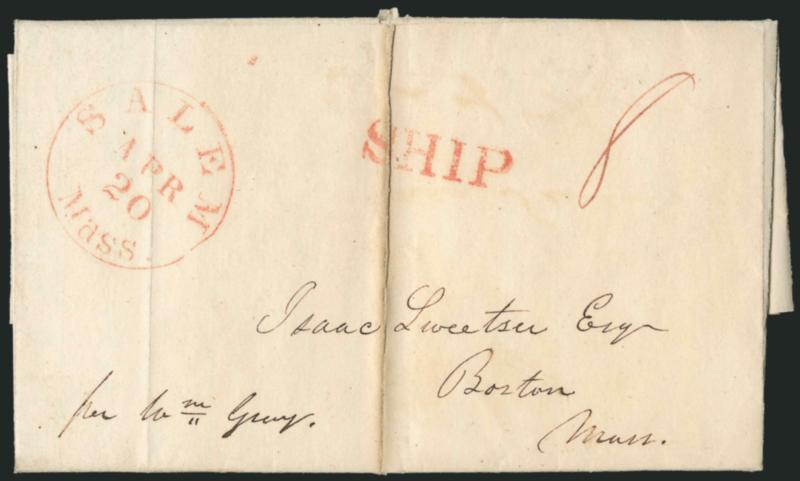 SALEM
APR
20
Mass.
SHIP
8
Isaac Sweetser Esqr
Boston
Mass.
per Wm Gray.